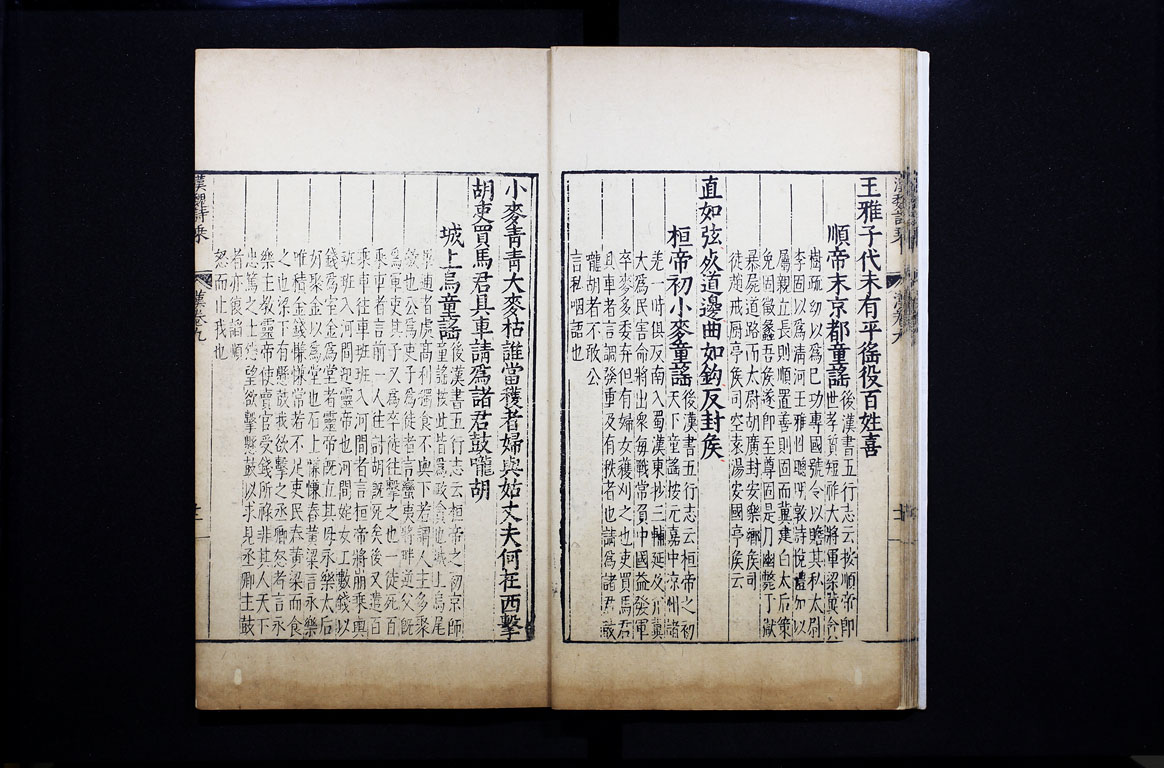 王雅子代未有平徭役百姓喜
順帝末京都童謠
後漢書五行志云按順帝即
世孝質短祚大將軍梁冀貪
樹疏幼以爲己功專國號令以贍其私太尉
李固以爲清河王雅性聰明敦詩悅禮加以
屬親立長則順置善則固而冀建白太后策
免固徵蠡吾侯遂即至尊固是月幽斃于獄
暴屍道路而太尉胡廣封安樂鄉侯司
徒趙戒厨亭侯司空袁湯安國亭侯云
直如弦死道邊曲如鉤反封侯
桓帝初小麥童謠
後漢書五行志云桓帝之初
天下童謠按元嘉中凉州諸
羌一時俱反南入蜀漢東抄三輔延及并冀
大爲民害命將出衆每戰常負中國益發軍
卒麥多委弃但有婦女獲刈之也吏買馬君
具車者言調發重及有秩者也請爲諸君鼓
嚨胡者不敢公
言私咽語也
小麥青青大麥枯誰當穫者婦與姑丈夫何在西擊
胡吏買馬君具車請爲諸君鼓嚨胡
城上烏童謠
後漢書五行志云桓帝之初京師
童謠按此皆爲政貪也城上烏尾
畢逋者處高利獨食不與下若謂人主多聚
斂也公爲吏子爲徒者言蠻夷將畔逆父既
爲軍吏其子又爲卒徒往擊之也一徒死百
乘車者言前一人往討胡既死矣後又遣百
乘車往車班班入河間者言桓帝將崩乘輿
班班入河間迎靈帝也河間姹女工數錢以
錢爲室金爲堂者靈帝既立其母永樂太后
好聚金以爲堂也石上慊慊舂黃粱言永樂
唯積金錢慊慊常若不足吏民舂黃粱而食
之也梁下有懸鼓我欲擊之丞卿怒者言永
樂主教靈帝使賣官受錢所祿非其人天下
忠篤之士怨望欲擊懸鼓以求見丞卿主鼓
者亦復諂順
怒而止我也
漢魏詩乘 漢卷九